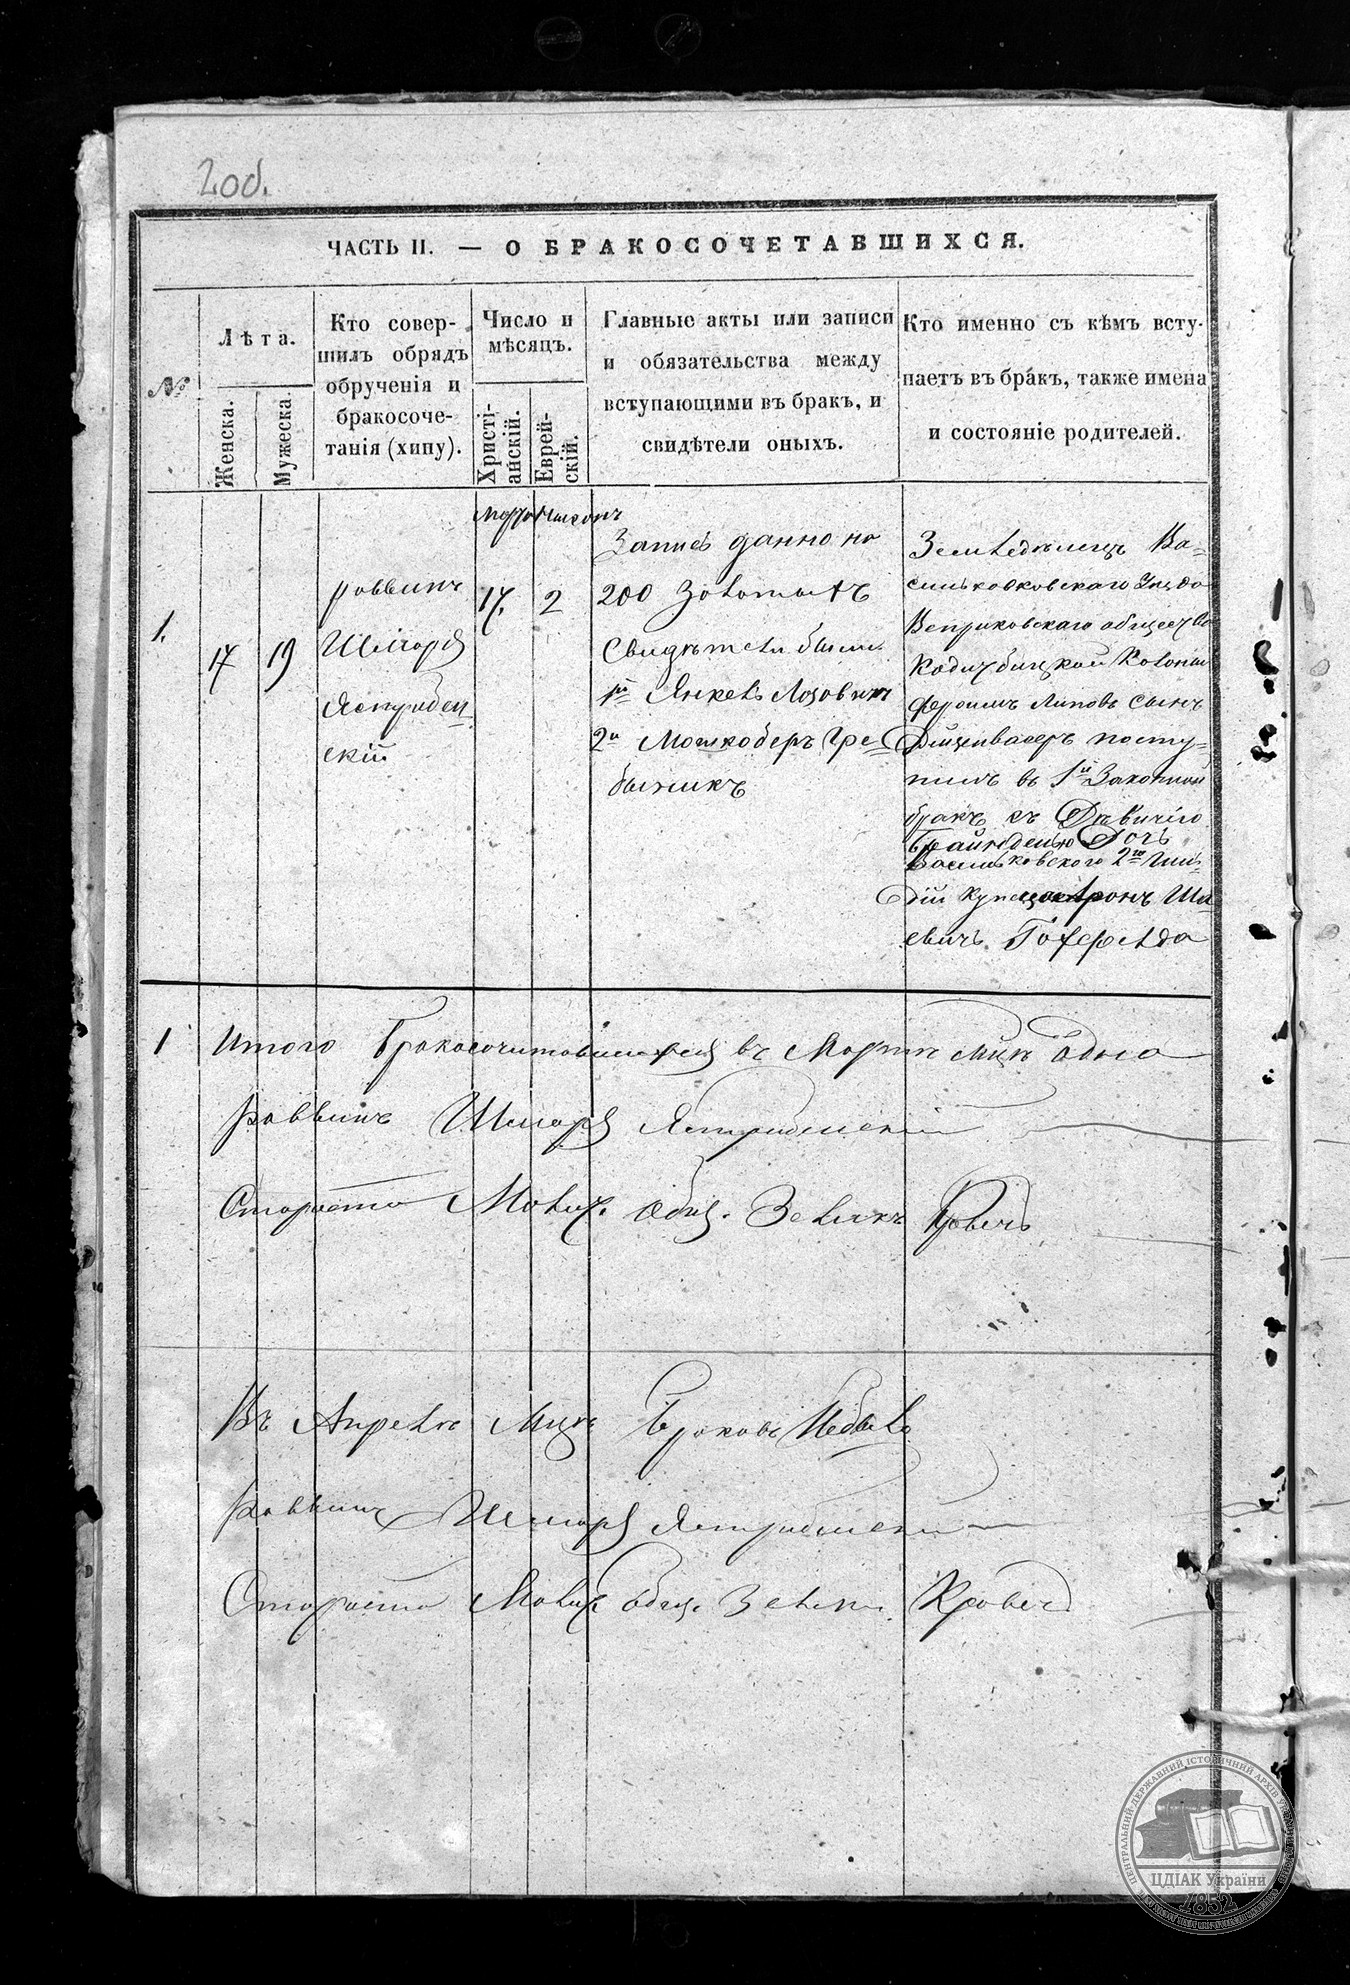 2 об.
ЧАСТЬ II. — О БРАКОСОЧЕТАВШИХСЯ.
№
Лѣта.
Женска.
Мужеска.
Кто совер-
шилъ обрядъ
обрученія и
бракосоче-
танія (хипу).
Число и
мѣсяцъ.
Христі-
анскій.
Еврей-
скій.
Главные акты или записи
и обязательства между
вступающими въ бракъ, и
свидѣтели оныхъ.
Кто именно съ кѣмъ всту-
паетъ въ бракъ, также имена
и состояніе родителей.
1.
17
19
раввинъ
Шмаря
Ястребел
скій
Мартъ
17.
Нисонъ
2
Запись данно на
200 Золотыхъ
Свидѣтели были
1й Янкель Лозовикъ
2й Мошкоберъ Гре=
бынникъ
Земледѣлецъ Ва=
сильковковскаго Уѣзда
Веприковскаго общества
Кодлубицкой Колоніи
Фероимъ Липовъ сынъ
посту=
пилъ въ 1й Законный
бракъ съ Дѣвицію
Дочь
Васильковского 2й Гиль
дій купца Аронъ Ша
евичъ
1
Итого бракосочитавшихся въ Мартѣ мцѣ одна
раввинъ Шмаря Ястребелскій
Староста Молит. общ. Зеликъ Кравецъ
Въ Апрелѣ мцѣ браковъ Небыло
раввинъ Шмаря Ястребелскій
Староста Молит общ. Зелик. Кравец
ЦЕНТРАЛЬНИЙ ДЕРЖАВНИЙ ІСТОРИЧНИЙ АРХІВ УКРАЇНИ
ЦДІАК України
1852